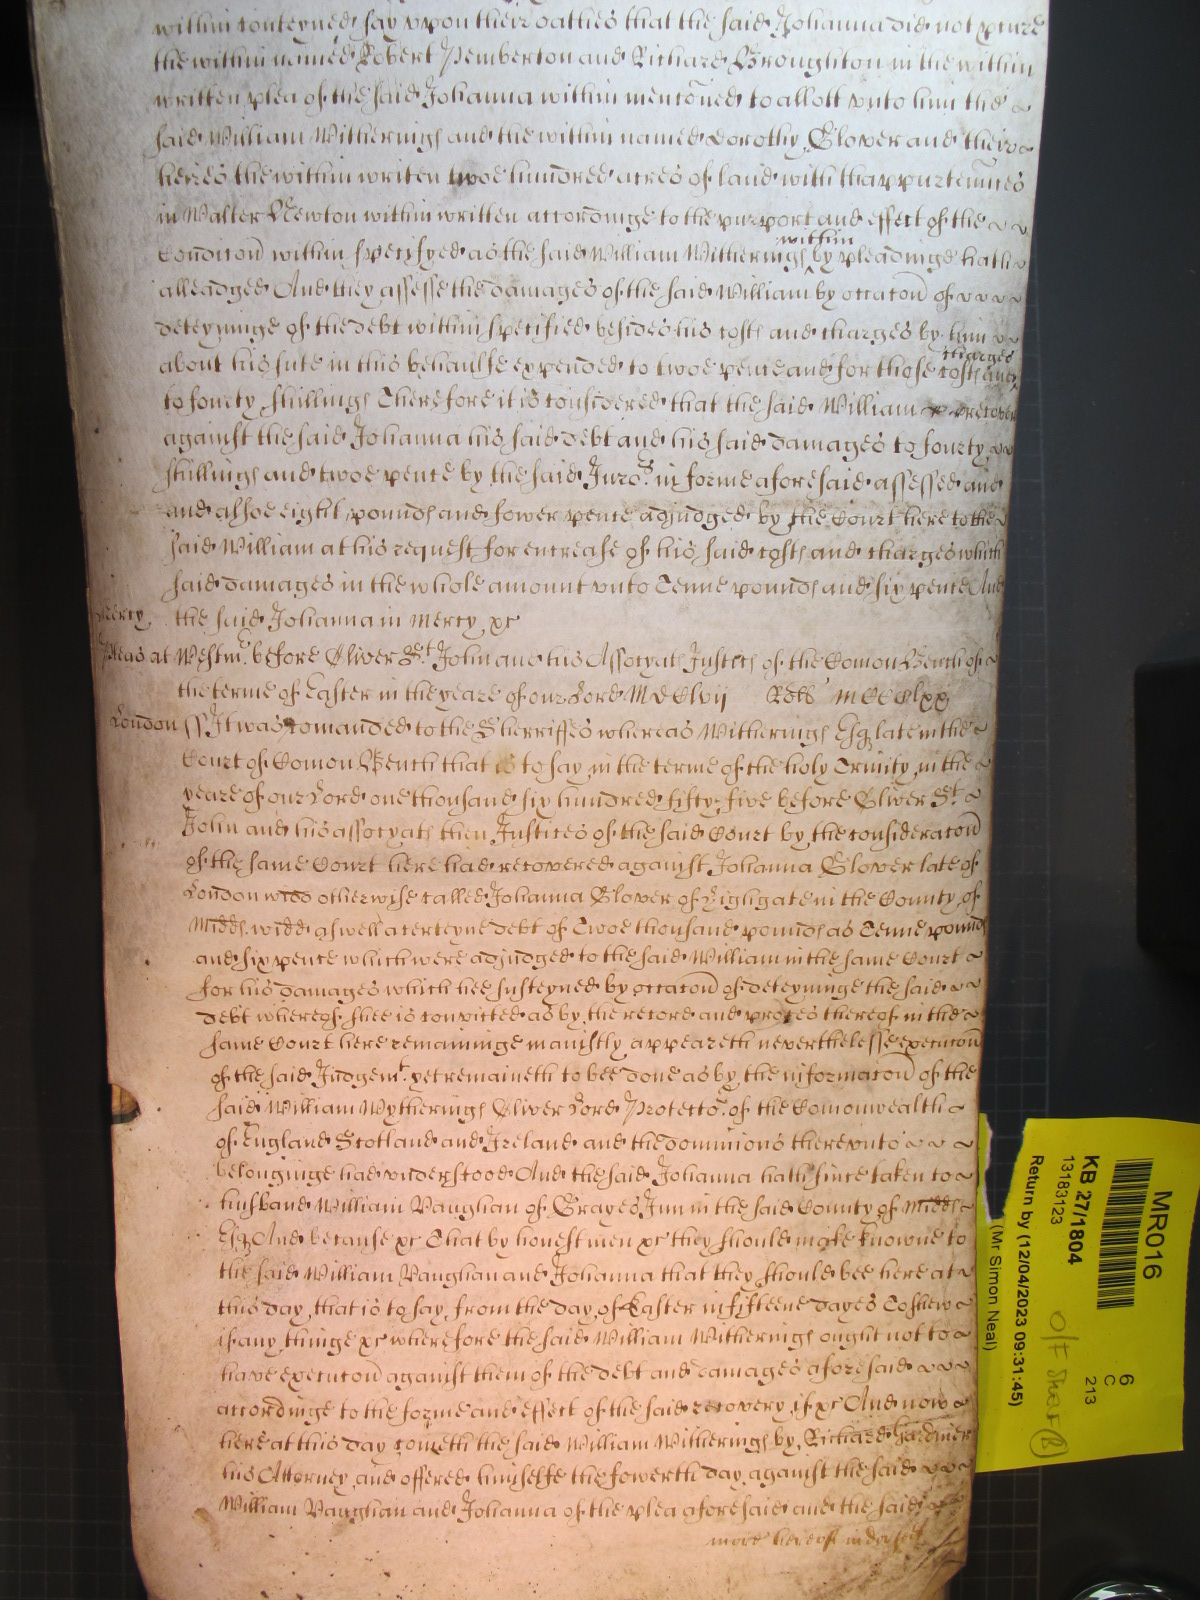 within conteyned say vpon their oathes that the said Johanna did not pcure
the within named Robert Pemberton and Richard Broughton in the within
written plea of the said Johanna within menconed to allott vnto him the
said William Witherings and the within named Dorothy Glover and their
heires the within writen twoe hundred acres of land with thappurtennces
in Walter Newton within written accordinge to the purport and effect of the
within
Condicon within specifyed as the said William Witherings by pleadinge hath
alleadged And they assesse the damages of the said William by occacon of
deteyninge of the debt within specified besides his costs and charges by him
charges
about his sute in this behaulfe expended to twoe pence and for those costs and
to fourty shillings Therefore it is considered that the said William recover
against the said Johanna his said debt and his said damages to fourty
shillings and twoe pence by the said Juro.rs in forme aforesaid assessed and
and alsoe eight pounds and fower pence adjudged by the Court here to the
said William at his request for encrease of his said costs and charges which
said damages in the whole amount vnto Tenne pounds and six pence And
Mercy the said Johanna in Mercy xc
Pleas at Westm.r before Oliver S.t John and his Assocyats Justices of the Comon Bench of
the terme of Easter in the yeare of our Lord MDClvij
London ss It was comanded to the Sherriffes whereas Witherings Esq late in the
Court of Comon Bench that is to say in the terme of the holy Trinity in the
yeare of our Lord one thousand six hundred fifty five before Oliver S.t
John and his assocyats then Justices of the said Court by the consideracon
of the same Court here had recovered against Johanna Glover late of
London widd otherwise called Johanna Glover of Highgate in the County of
Midds widd aswell a certeyne debt of Twoe thousand pounds as Tenne pounds
and six pence which were adjudged to the said William in the same Court
for his damages which hee susteyned by occacon of deteyninge the said
debt whereof shee is convicted as by the record and proces thereof in the
same Court here remaininge manifstly appeareth neverthelesse execucon
of the said Judgem.t yet remaineth to bee done as by the informacon of the
said William Wytherings Oliver Lord Protecto.r of the Comonwealth
of England Scotland and Ireland and the dominions therevnto
belonginge had vnderstood And the said Johanna hath since taken to
husband William Vaughan of Grayes Inn in the said County of Midds
Esq And because xc That by honest men xc they should make knowne to
the said William Vaughan and Johanna that they should bee here at
this day that is to say from the day of Easter in fifteene dayes To shew
if any thinge xc wherefore the said William Witherings ought not to
have execucon against them of the debt and damages aforesaid
accordinge to the forme and effect of the said recovery if xc And now
here at this day cometh the said William Witherings by Richard Gardiner
his Attorney and offered himselfe the fowerth day against the said
William Vaughan and Johanna of the plea aforesaid and the said
more hereof in dorso
MR016
6
C
213
KB 27/1804
13183123
O/F Shelf (B)
Return by (12/04/2023 09:31:45)
(Mr Simon Neal)